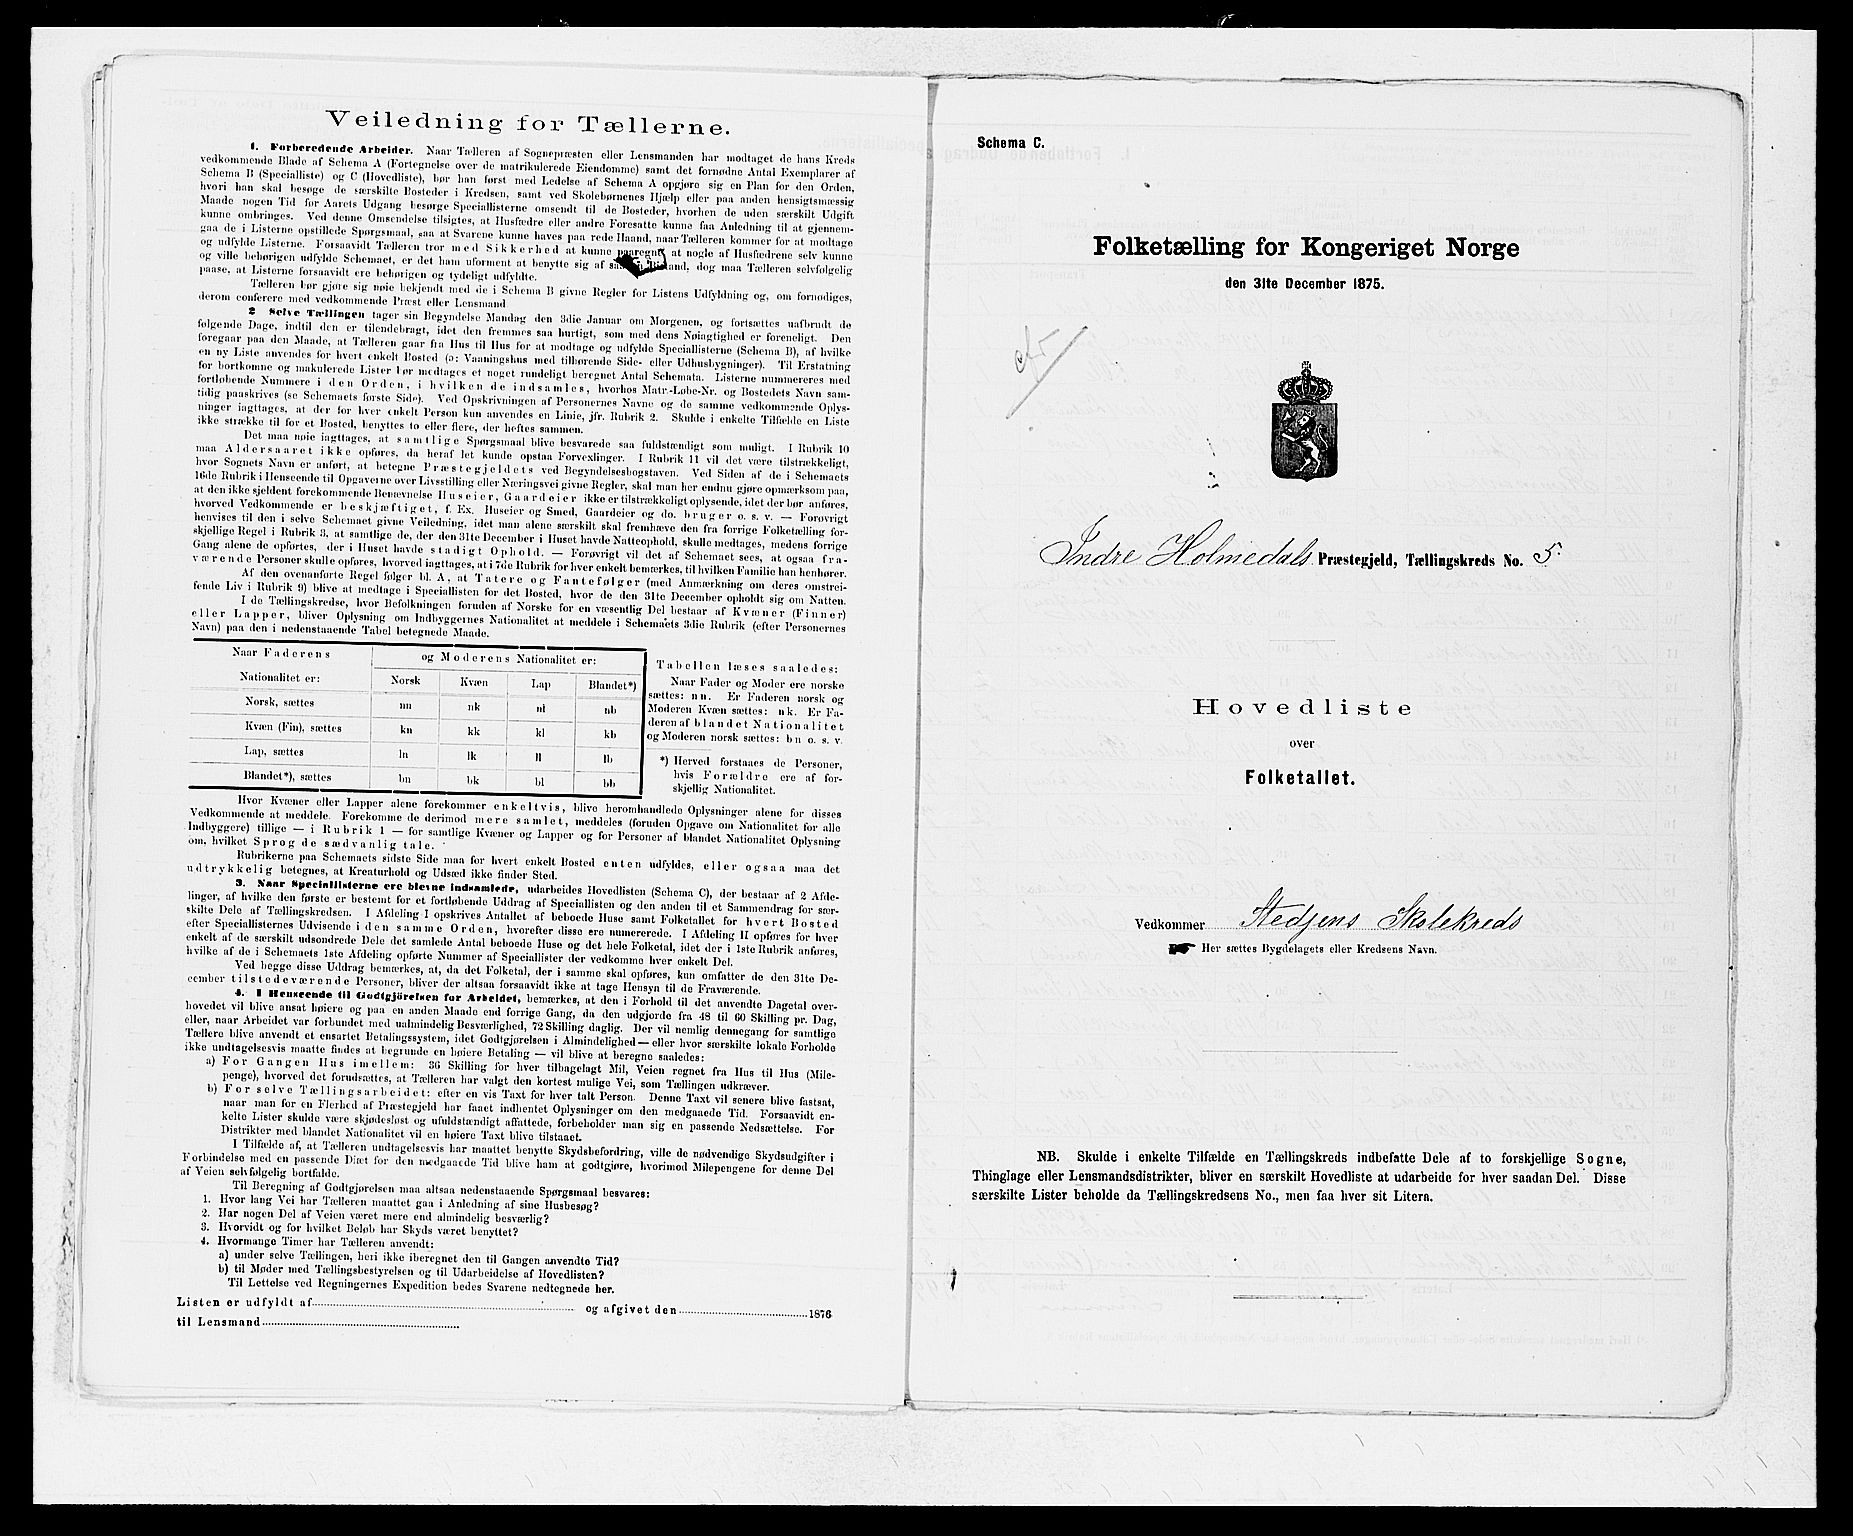 Veiledning for Tællerne.
1. Forberedende Arbeider. Naar Tælleren af Sognepræsten eller Lensmanden har modtaget de hans Kreds
vedkommende Blade af Schema A (Fortegnelse over de matrikulerede Eiendomme) samt det fornødne Antal Exemplarer af
Schema B (Specialliste) og C (Hovedliste), bør han først med Ledelse af Schema A opgjøre sig en Plan for den Orden,
hvori han skal besøge de særskilte Bosteder i Kredsen, samt ved Skolebørnenes Hjælp eller paa anden hensigtsmæssig
Maade nogen Tid før Aarets Udgang besørge Speciallisterne omsendt til de Bosteder, hvorhen de uden særskilt Udgift
kunne ombringes. Ved denne Omsendelse tilsigtes, at Husfædre eller andre Foresatte kunne faa Anledning til at gjennem-
gaa de i Listerne opstillede Spørgsmaal, saa at Svarene kunne haves paa rede Haand, naar Tælleren kommer for at modtage
og udfylde Listerne. Forsaavidt Tælleren tror med Sikkerhed at kunne paaregne, at nogle af Husfædrene selv kunne
og ville behørigen udfylde Schemaet, er det ham uforment at benytte sig af saadan Bistand, dog maa Tælleren selvfølgelig
paase, at Listerne forsaavidt ere behørigen og tydeligt udfyldte.
Tælleren bør gjøre sig nøie bekjendt med de i Schema B givne Regler for Listens Udfyldning og, om fornødiges,
derom conferere med vedkommende Præst eller Lensmand
2 Selve Tællingen tager sin Begyndelse Mandag den 3die Januar om Morgenen, og fortsættes uafbrudt de
følgende Dage, indtil den er tilendebragt, idet den fremmes saa hurtigt, som med dens Nøiagtighed er foreneligt. Den
foregaar paa den Maade, at Tælleren gaar fra Hus til Hus for at modtage og udfylde Speciallisterne (Schema B), af hvilke
en ny Liste anvendes for hvert enkelt Bosted (ɔ: Vaaningshus med tilhørende Side- eller Udhusbygninger). Til Erstatning
for bortkomne og makulerede Lister bør medtages et noget rundeligt beregnet Antal Schemata. Listerne nummereres med
fortløbende Nummere i den Orden, i hvilken de indsamles, hvorhos Matr.-Løbe-Nr. og Bostedets Navn sam-
tidig paaskrives (se Schemaets første Side). Ved Opskrivningen af Personernes Navne og de samme vedkommende Oplys-
ninger iagttages, at der for hver enkelt Person kun anvendes en Linie, jfr. Rubrik 2. Skulde i enkelte Tilfælde en Liste
ikke strække til for et Bosted, benyttes to eller flere, der heftes sammen.
Det maa nøie iagttages, at samtlige Spørgsmaal blive besvarede saa fuldstændigt som muligt. I Rubrik 10
maa Aldersaaret ikke opføres, da heraf let kunde opstaa Forvexlinger. I Rubrik 11 vil det være tilstrækkeligt,
hvor Sognets Navn er anført, at betegne Præstegjeldets ved Begyndelsesbogstaven. Ved Siden af de i Schemaets
16de Rubrik i Henseende til Opgaverne over Livsstilling eller Næringsvei givne Regler, skal man her endnu gjøre opmærksom paa,
at den ikke sjeldent forekommende Benævnelse Huseier, Gaardeier ikke er tilstrækkeligt oplysende, idet der bør anføres,
hvorved Vedkommende er beskjæftiget, f. Ex. Huseier og Smed, Gaardeier og do. bruger o. s. v. — Forøvrigt
henvises til den i selve Schemaet givne Veiledning, idet man alene særskilt skal fremhæve den fra forrige Folketælling for-
skjellige Regel i Rubrik 3, at samtlige de, der den 31te December i Huset havde Natteophold, skulle medtages, medens forrige
Gang alene de opførtes, der i Huset havde stadigt Ophold. — Forøvrigt vil det af Schemaet sees, at ogsaa fra-
værende Personer skulle opføres, hvorved iagttages, at i 7de Rubrik for hver enkelt bemærkes, til hvilken Familie han henhører.
Af den ovenanførte Regel følger bl. A, at Tatere og Fantefølger (med Anmærkning om deres omstrei-
fende Liv i Rubrik 9) blive at medtage i Speciallisten for det Bosted, hvor de den 31te December opholdt sig om Natten.
I de Tællingskredse, hvor Befolkningen foruden af Norske for en væsentlig Del bestaar af Kvæner (Finner)
eller Lapper, bliver Oplysning om Indbyggernes Nationalitet at meddele i Schemaets 3die Rubrik (efter Personernes
Navn) paa den i nedenstaaende Tabel betegnede Maade.
Naar Faderens
Nationalitet er:
og Moderens Nationalitet er:
Norsk Kvæn Lap Blandet*)
Norsk, sættes nn nk nl nb
Kvæn (Fin), sættes kn kk kl kb
Lap, sættes ln lk ll lb
Blandet*), sættes bn bk bl bb
Tabellen læses saaledes:
Naar Fader og Moder ere norske
sættes: nn. Er Faderen norsk og
Moderen Kvæn sættes: nk. Er Fa-
deren af blandet Nationalitet
og Moderen norsk sættes: bn o. s. v.
*) Herved forstaaes de Personer,
hvis Forældre ere af for-
skjellig Nationalitet.
Hvor Kvæner eller Lapper alene forekommer enkeltvis, blive heromhandlede Oplysninger alene for disses
Vedkommende at meddele. Forekomme de derimod mere samlet, meddeles (foruden Opgave om Nationalitet for alle
Indbyggere) tillige — i Rubrik 1 — for samtlige Kvæner og Lapper og for Personer af blandet Nationalitet Oplysning
om, hvilket Sprog de sædvanlig tale.
Rubrikerne paa Schemaets sidste Side maa for hvert enkelt Bosted enten udfyldes, eller ogsaa maa det
udtrykkelig betegnes, at Kreaturhold og Udsæd ikke finder Sted.
3. Naar Speciallisterne ere blevne indsamlede, udarbeides Hovedlisten (Schema C), der bestaar af 2 Afde-
linger, af hvilke den første er bestemt for et fortløbende Uddrag af Speciallisten og den anden til et Sammendrag for sær-
skilte Dele af Tællingskredsen. I Afdeling I opskrives Antallet af beboede Huse samt Folketallet for hvert Bosted
efter Speciallisternes Udvisende i den samme Orden, hvorefter disse ere numererede. I Afdeling II opføres for hver
enkelt af de særskilt udsondrede Dele det samlede Antal beboede Huse og det hele Folketal, idet der i 1ste Rubrik anføres,
hvilke af de i Schemaets 1ste Afdeling opførte Nummer af Speciallister der vedkomme hver enkelt Del.
Ved begge disse Uddrag bemærkes, at, da det Folketal, der i samme skal opføres, kun omfatter de den 31te De-
cember tilstedeværende Personer, bliver der altsaa forsaavidt ikke at tage Hensyn til de Fraværende.
4. I Henseende til Godtgjørelsen for Arbeidet, bemærkes, at den i Forhold til det anvendte Dagetal over-
hovedet vil blive ansat høiere og paa en anden Maade end forrige Gang, da den udgjorde fra 48 til 60 Skilling pr. Dag,
eller, naar Arbeidet var forbundet med ualmindelig Besværlighed, 72 Skilling daglig. Der vil nemlig dennegang for samtlige
Tællere blive anvendt et ensartet Betalingssystem, idet Godtgjørelsen i Almindelighed — eller hvor særskilte lokale Forholde
ikke undtagelsesvis maatte findes at begrunde en høiere Betaling — vil blive at beregne saaledes:
a) For Gangen Hus imellem: 36 Skilling for hver tilbagelagt Mil, Veien regnet fra Hus til Hus (Mile-
penge), hvorved det forudsættes, at Tælleren har valgt den kortest mulige Vei, som Tællingen udkræver.
b) For selve Tællingsarbeidet: efter en vis Taxt for hver talt Person. Denne Taxt vil senere blive fastsat,
naar man for en Flerhed af Præstegjeld har faaet indhentet Oplysninger om den medgaaede Tid. Forsaavidt en-
kelte Lister skulde være skjødesløst og ufuldstændigt affattede, forbeholder man sig en passende Nedsættelse. For
Distrikter med blandet Nationalitet vil en høiere Taxt blive tilstaaet.
I Tilfælde af, at Tælleren undtagelsesvis har maattet benytte Skydsbefordring, ville de nødvendige Skydsudgifter i
Forbindelse med en passende Diæt for den medgaaede Tid blive ham at godtgjøre, hvorimod Milepengene for denne Del
af Veien selvfølgelig bortfalde.
Til Beregning af Godtgjørelsen maa altsaa nedenstaaende Spørgsmaal besvares:
1. Hvor lang Vei har Tælleren maattet gaa i Anledning af sine Husbesøg?
2. Har nogen Del af Veien været mere end almindelig besværlig?
3. Hvorvidt og for hvilket Beløb har Skyds været benyttet?
4. Hvormange Timer har Tælleren anvendt:
a) under selve Tællingen, heri ikke iberegnet den til Gangen anvendte Tid?
b) til Møder med Tællingsbestyrelsen og til Udarbeidelse af Hovedlisten?
Til Lettelse ved Regningernes Expedition bedes Svarene nedtegnede her.
Listen er udfyldt af og afgivet den 1876
til Lensmand
Schema C.
Folketælling for Kongeriget Norge
den 31te December 1875.
Indre Holmedals Præstegjeld, Tællingskreds No. 5.
Hovedliste
over
Folketallet.
Vedkommer Stedjens Skolekreds
Her sættes Bygdelagets eller Kredsens Navn.
NB. Skulde i enkelte Tilfælde en Tællingskreds indbefatte Dele af to forskjellige Sogne,
Thinglage eller Lensmandsdistrikter, bliver en særskilt Hovedliste at udarbeide for hver saadan Del. Disse
særskilte Lister beholde da Tællingskredsens No., men faa hver sit Litera.